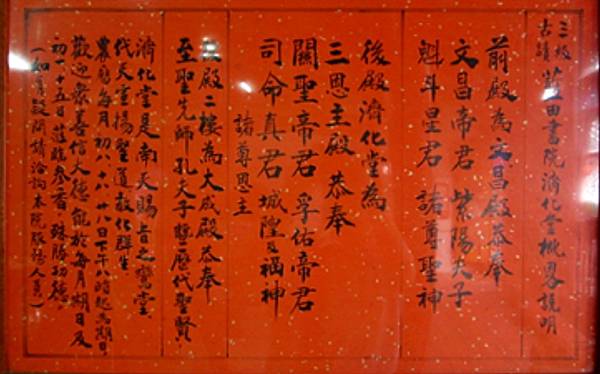 三級古蹟 藍田書院濟化堂概畧說明
前殿為文昌殿恭奉
文昌帝君 紫陽夫子
魁斗星君 諸尊聖神
後殿濟化堂為
三恩主殿 恭奉
關聖帝君 孚佑帝君
司命真君 城隍及福神
諸尊恩主
後殿二樓為大成殿恭奉
至聖先師孔夫子暨歷代聖賢
濟化堂是南天賜旨之鸞堂
代天宣揚聖道教化群生
農曆每月初八、十八、廿八日下午八時起為期日，
歡迎眾善信大德能於每月期日及
初一十五日蒞臨參香，殊勝功德。
（如有疑問請洽詢本院服務人員）